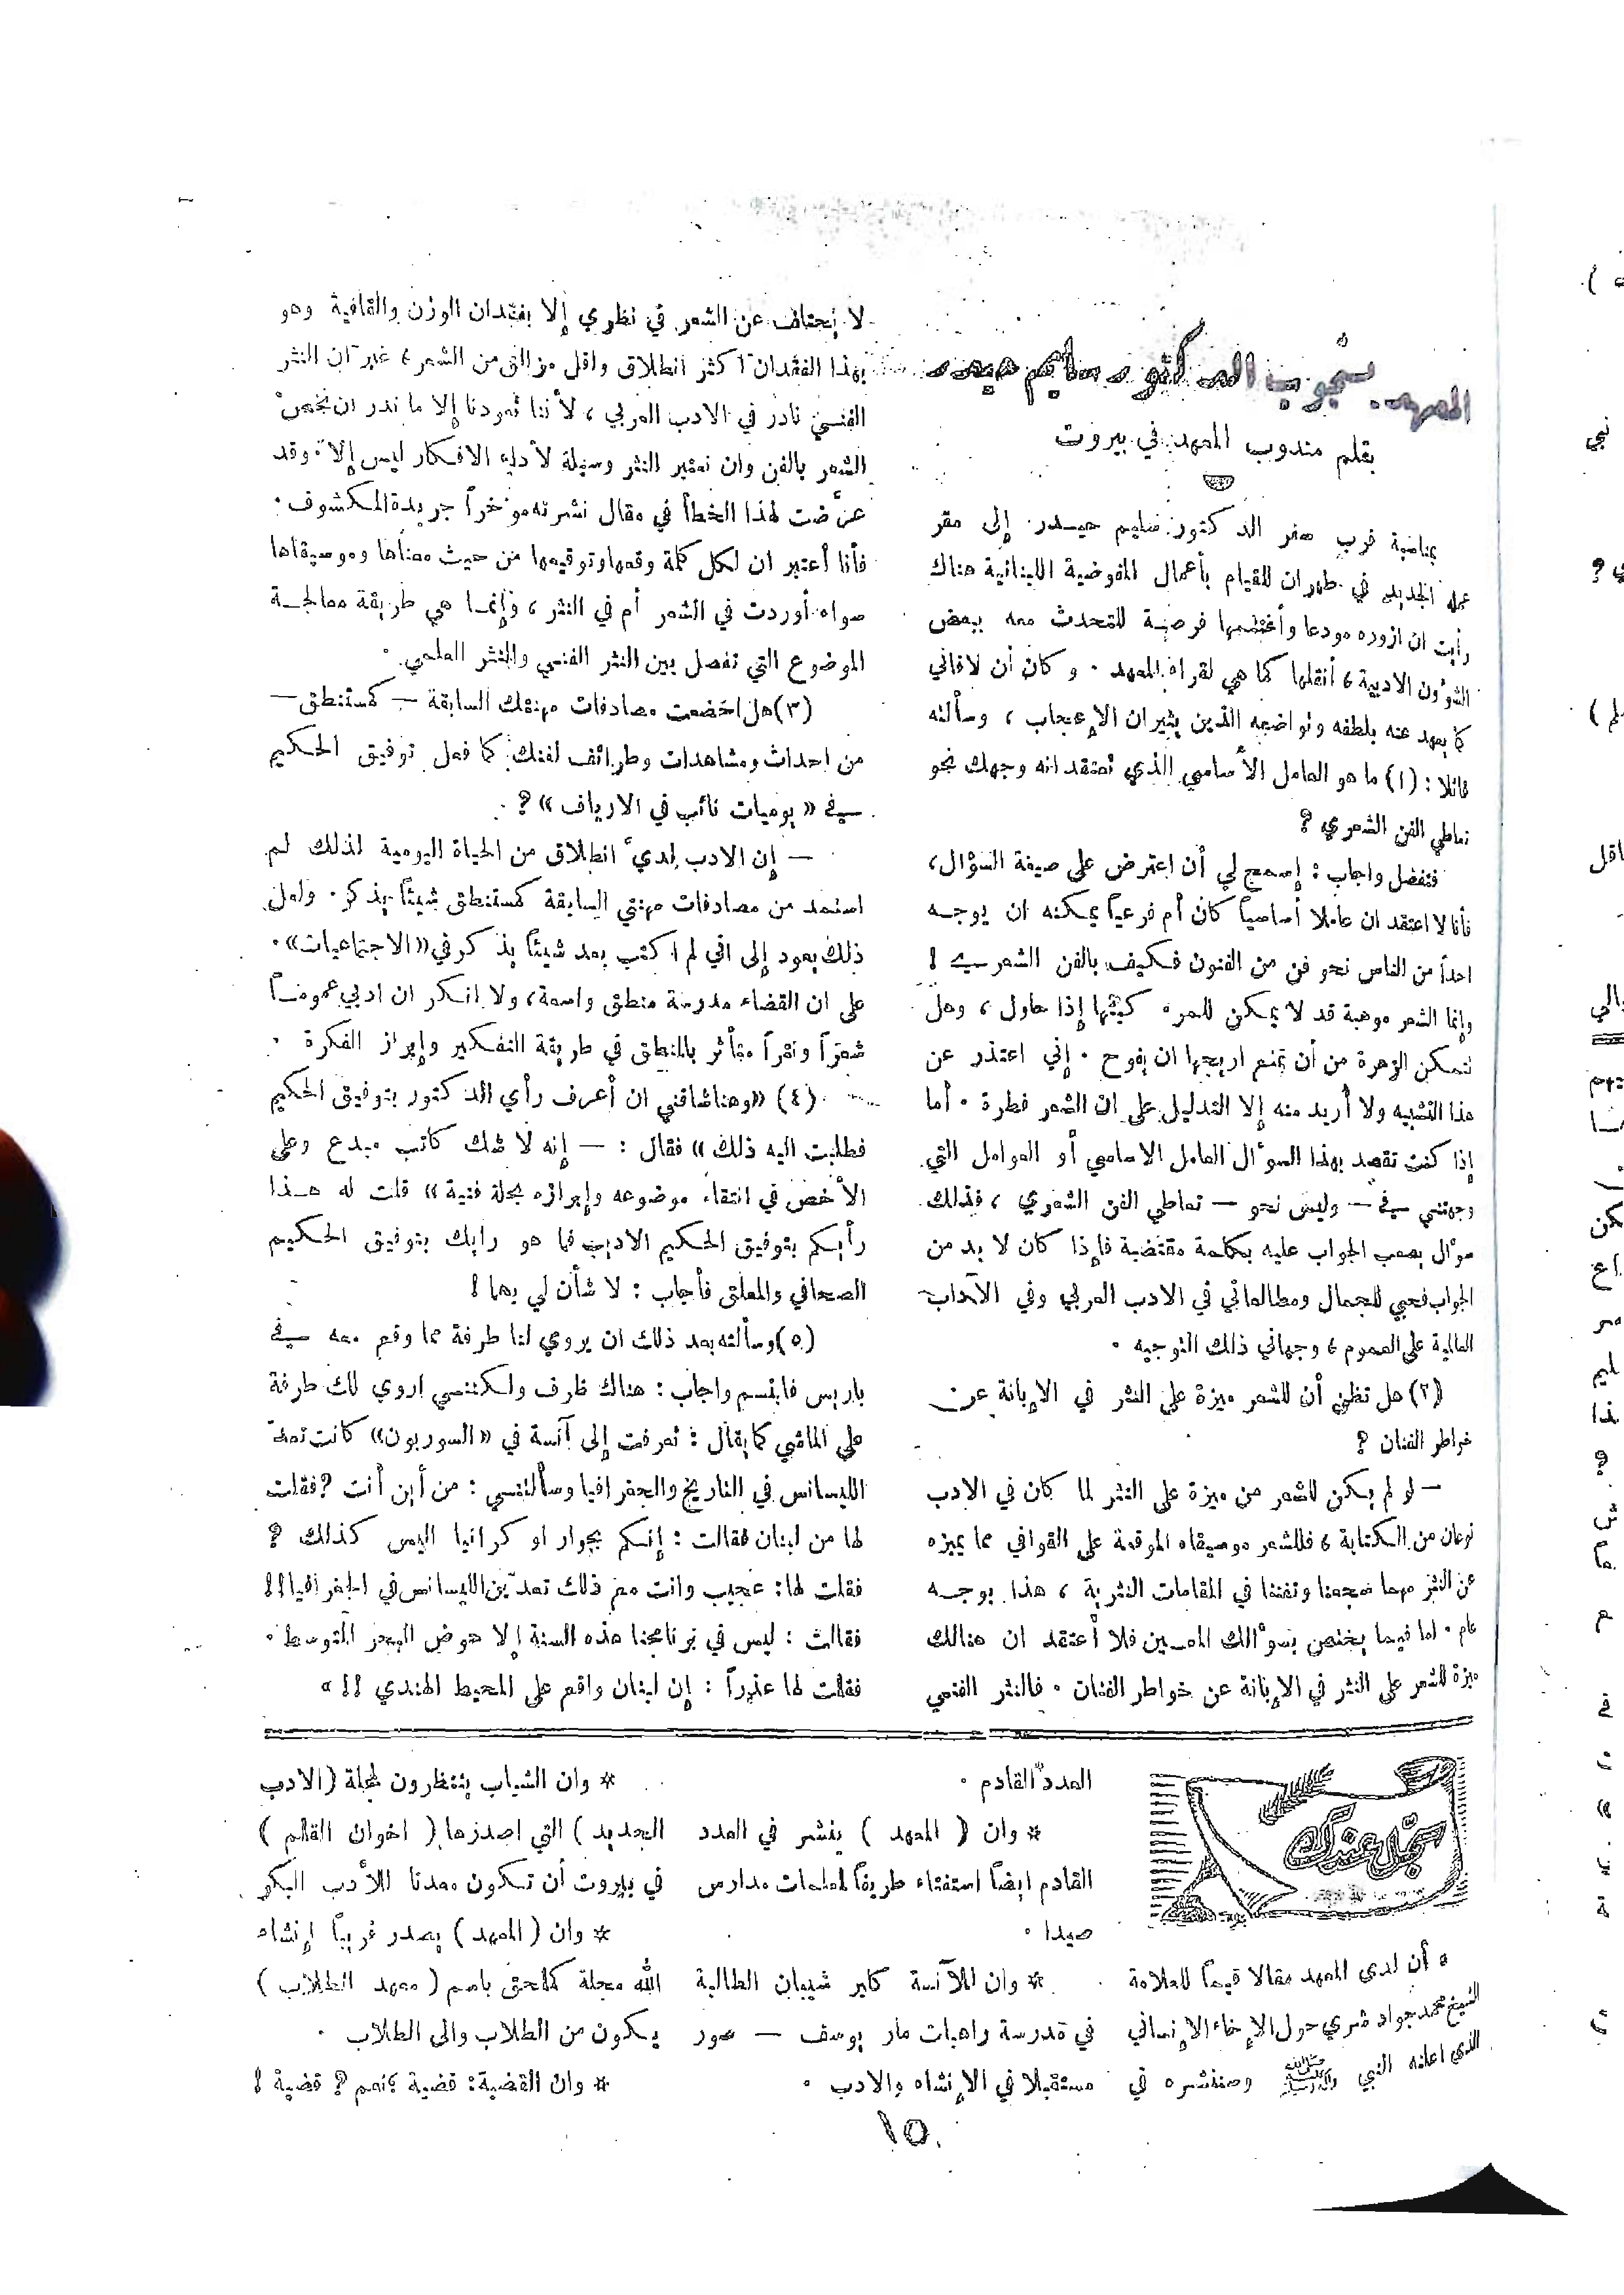 المعهد يستجوب الدكتور سليم حيدر
بقلم مندوب المعهد في بيروت
بمناسبة قرب سفر الدكتور سليم حيدر إلى مقر
عمله الجديد في طهران للقيام بأعمال المفوضية اللبنانية هناك
رأيت ان ازوره مودعا وأغتنمها فرصة للتحدث معه ببعض
الشؤون الادبية ، أنقلها كما هي لقراء المعهد . وكان أن لاقاني
كما يعهد عنه بلطفه وتواضعه الذين يثيران الإعجاب ، وسألته
قائلا : (١) ما هو العامل الأساسي الذي تعتقد انه وجهك نحو
تعاطي الفن الشعري ؟
فتفضل واجاب : إسمح لي أن اعترض على صيغة السؤال،
فأنا لا اعتقد ان عاملا أساسياً كان أم فرعياً يمكنه ان يوجه
احداً من الناس نحو فن من الفنون فكيف بالفن الشعري !
وإنما الشعر موهبة قد لا يمكن للمرء كبتها إذا حاول ، وهل
تتمكن الزهرة من أن تمنع اريجها ان يفوح . إني اعتذر عن
هذا التشبيه ولا أريد منه إلا التدليل على ان الشعر فطرة . أما
إذا كنت تقصد بهذا السؤال العامل الاساسي أو العوامل التي
وجهتني في — وليس نحو — تعاطي الفن الشعري ، فذلك
سؤال يصعب الجواب عليه بكلمة مقتضبة فإذا كان لا بد من
الجواب فحبي للجمال ومطالعاتي في الادب العربي وفي الآداب
العالمية على العموم ، وجهاني ذلك التوجيه .
(٢) هل تظن أن للشعر ميزة على النثر في الإبانة عن
خواطر الفنان ؟
— لو لم يكن للشعر من ميزة على النثر لما كان في الادب
نوعان من الكتابة ، فللشعر موسيقاه الموقعة على القوافي مما يميزه
عن النثر مهما سجعنا وتفننا في المقامات النثرية ، هذا بوجه
عام . اما فيما يختص بسؤالك المعين فلا أعتقد ان هنالك
ميزة للشعر على النثر في الإبانة عن خواطر الفنان . فالنثر الفني
لا يختلف عن الشعر في نظري إلا بفقدان الوزن والقافية وهو
بهذا الفقدان اكثر انطلاق واقل مزالق من الشعر ، غير ان النثر
الفني نادر في الادب العربي ، لأننا تعودنا إلا ما ندر ان نخص
الشعر بالفن وان نعتبر النثر وسيلة لأداء الافكار ليس إلا . وقد
عرضت لهذا الخطأ في مقال نشرته مؤخراً جريدة المكشوف .
فأنا أعتبر ان لكل كلمة وقعها وتوقيعها من حيث معناها وموسيقاها
سواء أوردت في الشعر أم في النثر ، وإنما هي طريقة معالجة
الموضوع التي تفصل بين النثر الفني والنثر العلمي .
(٣) هل اخضعت مصادفات مهنتك السابقة — كمستنطق —
من احداث ومشاهدات وطرائف لفنك كما فعل توفيق الحكيم
في « يوميات نائب في الارياف » ؟ .
— إن الادب لديّ انطلاق من الحياة اليومية لذلك لم
استمد من مصادفات مهنتي السابقة كمستنطق شيئاً يذكر . ولعل
ذلك يعود إلى اني لم اكتب بعد شيئاً يذكر في «الاجتماعيات» .
على ان القضاء مدرسة منطق واسعة، ولا انكر ان ادبي عموماً
شعراً ونثراً متأثر بالمنطق في طريقة التفكير وإبراز الفكرة .
(٤) «وهنا شاقني ان أعرف رأي الدكتور بتوفيق الحكيم
فطلبت اليه ذلك » فقال : — إنه لا شك كاتب مبدع وعلى
الأخص في انتقاء موضوعه وإبرازه بحلة فنية » قلت له هذا
رأيكم بتوفيق الحكيم الاديب فما هو رايك بتوفيق الحكيم
الصحافي والمعلق فأجاب : لا شأن لي بهما !
(٥) وسألته بعد ذلك ان يروي لنا طرفة مما وقع معه في
باريس فابتسم واجاب : هناك ظرف ولكنني اروي لك طرفة
على الماشي كما يقال : تعرفت إلى آنسة في «السوربون» كانت تعدّ
الليسانس في التاريخ والجغرافيا وسألتني : من أين أنت ؟ فقلت
لها من لبنان فقالت : إنكم بجوار اوكرانيا اليس كذلك ؟
فقلت لها : عجيب وانت مع ذلك تعدّين الليسانس في الجغرافيا !!
فقالت : ليس في برنامجنا هذه السنة إلا حوض البحر المتوسط .
فقلت لها عذراً : إن لبنان واقع على المحيط الهندي !! »
سجّل عندك
* أن لدى المعهد مقالا قيماً للعلامة
الشيخ محمد جواد شري حول الإخاء الإنساني
الذي اعلنه النبي ﷺ وسننشره في
العدد القادم .
* وان ( المعهد ) ينشر في العدد
القادم ايضاً استفتاء طريفاً لمعلمات مدارس
صيدا .
* وان للآنسة كابر شيبان الطالبة
في مدرسة راهبات مار يوسف — صور
مستقبلا في الإنشاء والادب .
* وان الشباب ينتظرون لمجلة ( الادب
الجديد ) التي اصدرها ( اخوان القلم )
في بيروت أن تكون معدنا للأدب البكر
* وان ( المعهد ) يصدر قريباً إنشاء
الله مجلة كملحق باسم ( معهد الطلاب )
يكون من الطلاب والى الطلاب .
* وان القضية: قضية ؟نعم ؟ قضية !
١٥